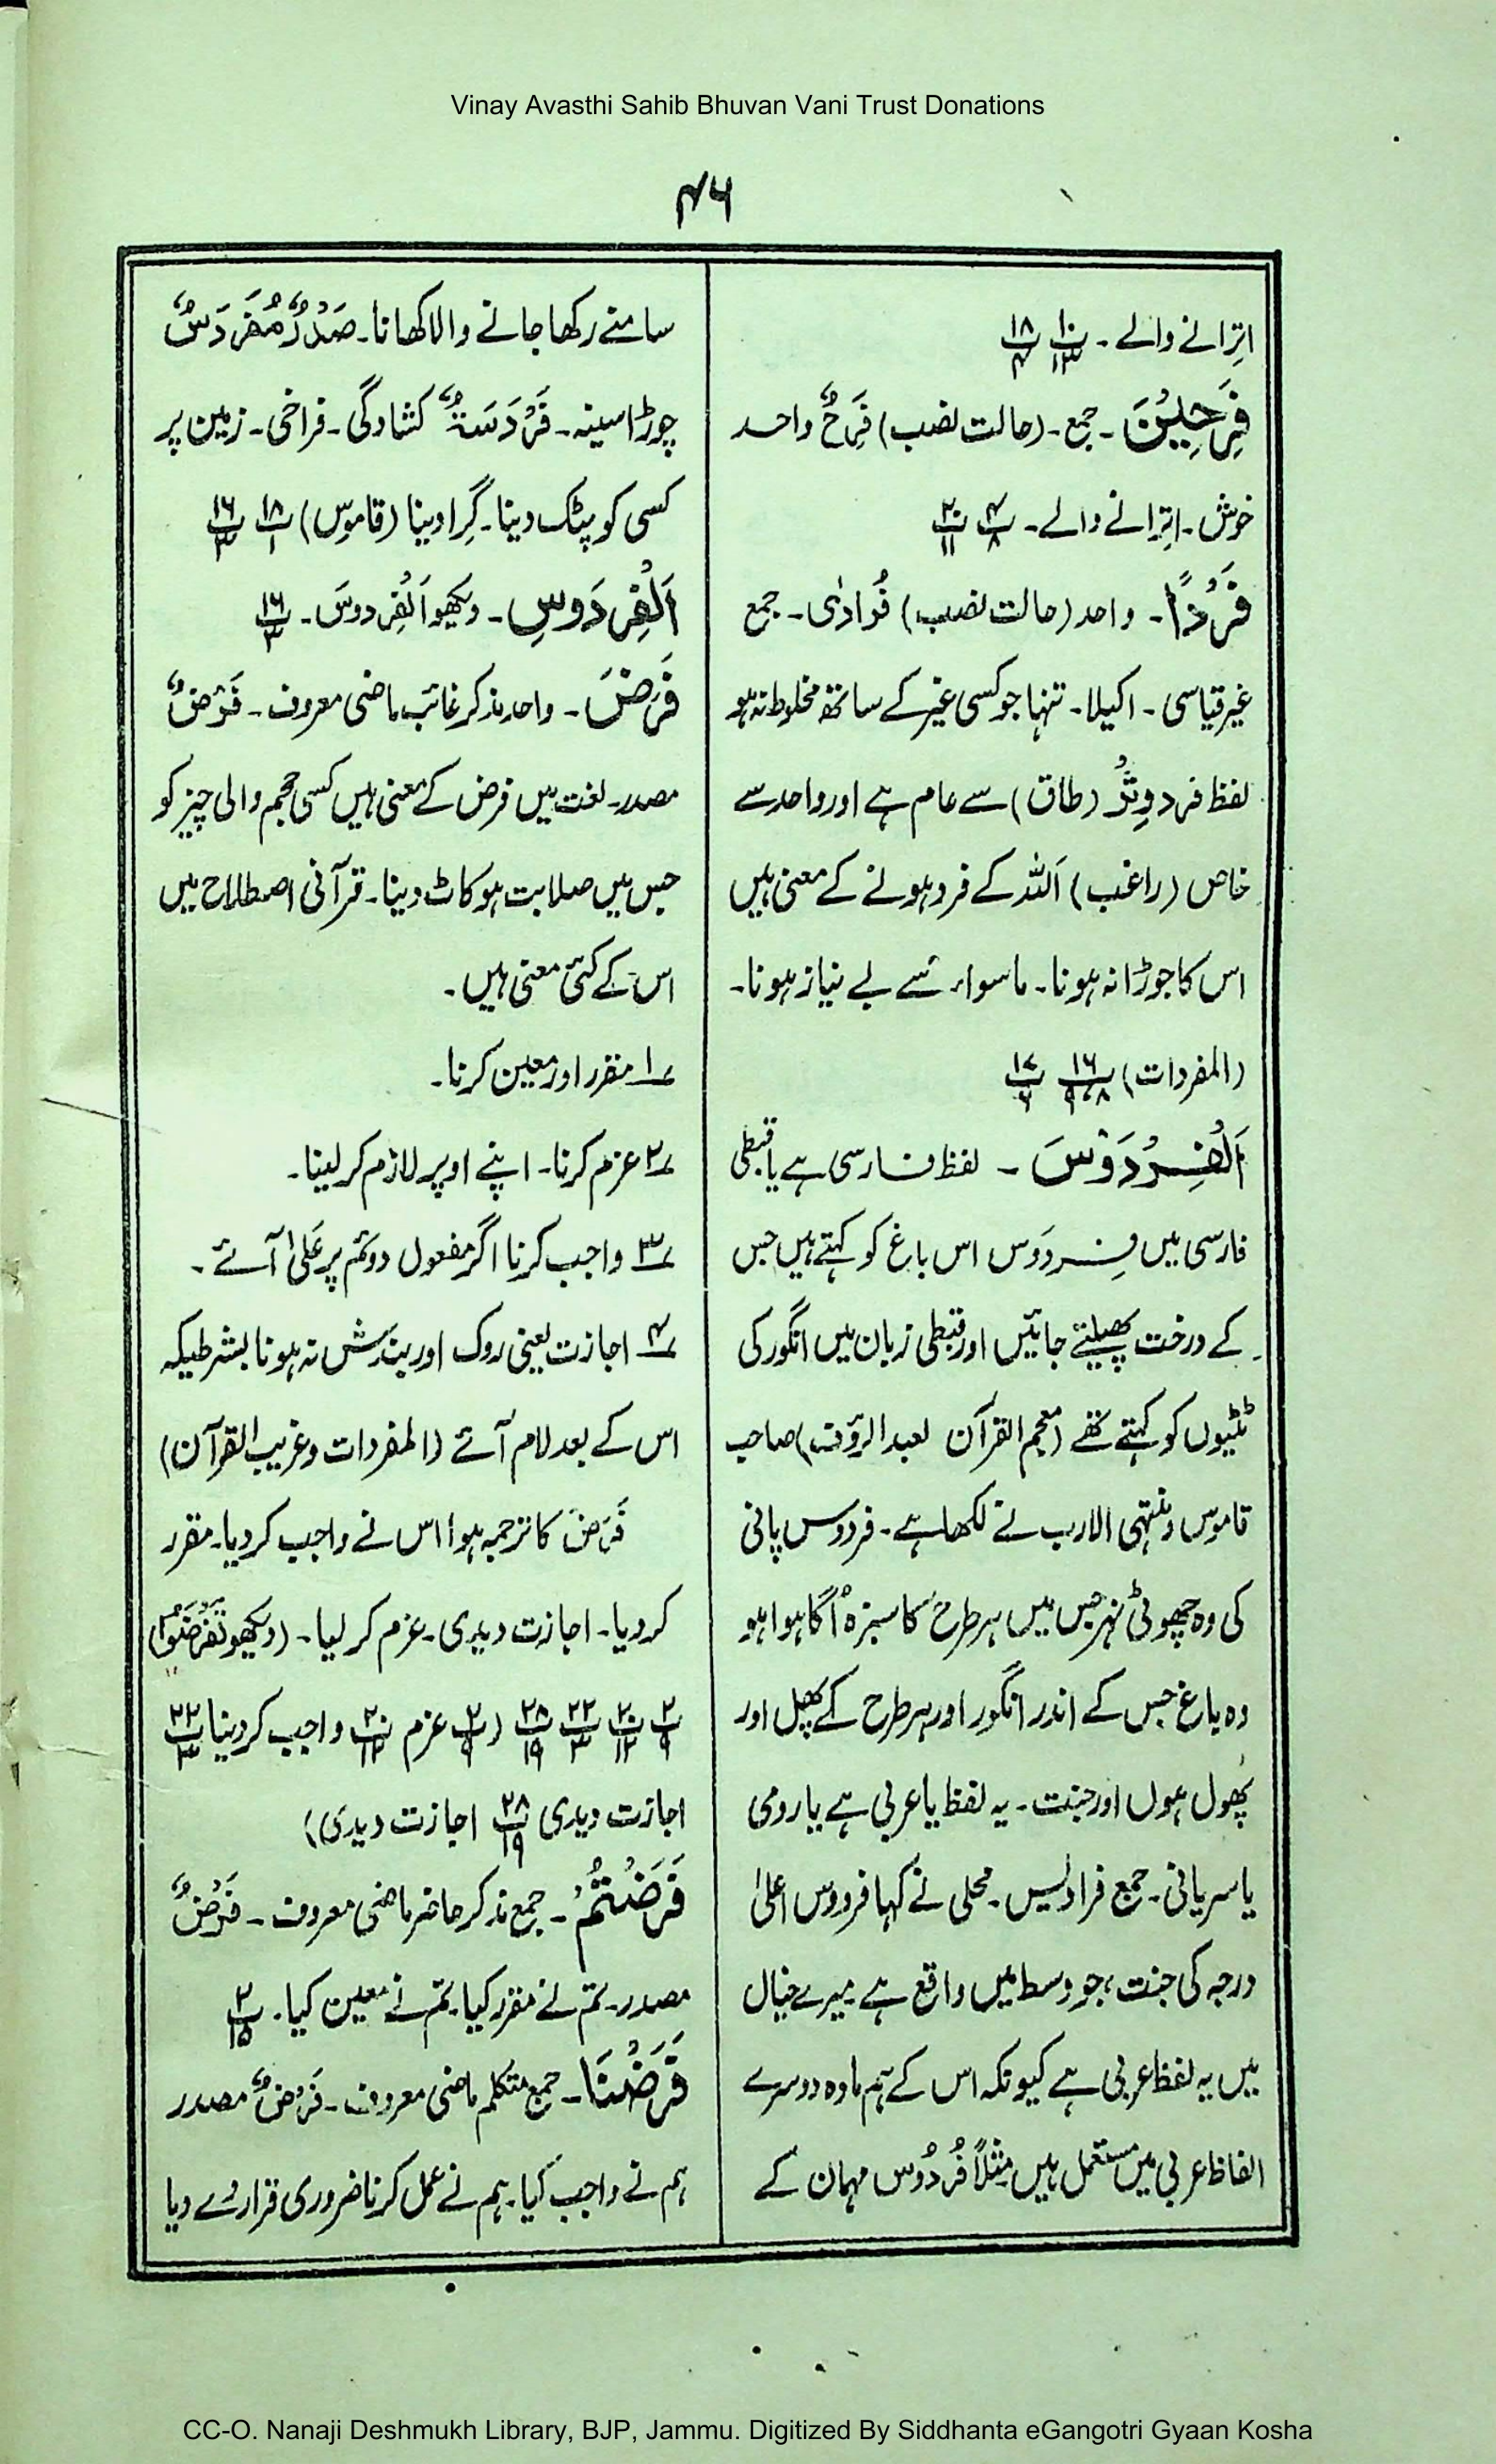 Vinay Avasthi Sahib Bhuvan Vani Trust Donations
۴۶
اِترانے والے۔ پ۱۰/۱۳ پ۱۸/۴
فَرِحِیْنَ۔ جمع۔ (حالت نصب) فَرِحٌ واحد
خوش۔ اِترانے والے۔ پ۴/۸ پ۲۰/۱۱
فَرْدًا۔ واحد (حالت نصب) فُرَادٰی۔ جمع
غیر قیاسی۔ اکیلا۔ تنہا جو کسی غیر کے ساتھ مخلوط نہ ہو
لفظ فرد وِتْرٌ (طاق) سے عام ہے اور واحد سے
خاص (راغب) اَللہ کے فرد ہونے کے معنی ہیں
اس کا جوڑا نہ ہونا۔ ماسواء سے بے نیاز ہونا۔
(المفردات) پ۱۶/۸،۹ پ۱۷/۶
اَلْفِرْدَوْسَ۔ لفظ فارسی ہے یا قبطی
فارسی میں فِردَوس اس باغ کو کہتے ہیں جس
کے درخت پھیلتے جائیں اور قبطی زبان میں انگور کی
ٹٹیوں کو کہتے تھے (معجم القرآن لعبد الرؤف) صاحب
قاموس و منتہی الارب نے لکھا ہے۔ فردوس پانی
کی وہ چھوٹی نہر جس میں ہر طرح کا سبزہ اُگا ہوا ہو
وہ باغ جس کے اندر انگور اور ہر طرح کے پھل اور
پھول ہوں اور جنت۔ یہ لفظ یا عربی ہے یا رومی
یا سریانی۔ جمع فرادیس۔ محلی نے کہا فردوس اعلیٰ
درجہ کی جنت ہے جو وسط میں واقع ہے میرے خیال
میں یہ لفظ عربی ہے کیونکہ اس کے ہم مادہ دوسرے
الفاظ عربی میں مستعمل ہیں مثلاً فُردُوس مہمان کے
سامنے رکھا جانے والا کھانا۔ صَدْرٌ مُفَرْدَسٌ
چوڑا سینہ۔ فَرْدَسَۃٌ کشادگی۔ فراخی۔ زمین پر
کسی کو پٹک دینا۔ گِرا دینا (قاموس) پ۱۸/۱ پ۱۶/۳
اَلْفِرْدَوْسِ۔ دیکھو اَلْفِردوسَ۔ پ۱۶/۳
فَرَضَ۔ واحد مذکر غائب ماضی معروف۔ فَرْضٌ
مصدر۔ لغت میں فرض کے معنی ہیں کسی حجم والی چیز کو
جس میں صلابت ہو کاٹ دینا۔ قرآنی اصطلاح میں
اس کے کئی معنی ہیں۔
۱؎ مقرر اور معین کرنا۔
۲؎ عزم کرنا۔ اپنے اوپر لازم کر لینا۔
۳؎ واجب کرنا اگر مفعول دوئم پر عَلیٰ آئے۔
۴؎ اجازت یعنی روک اور بندش نہ ہونا بشرطیکہ
اس کے بعد لام آئے (المفردات وغریب القرآن)
فَرَضَ کا ترجمہ ہوا اس نے واجب کر دیا۔ مقرر
کر دیا۔ اجازت دیدی۔ عزم کر لیا۔ (دیکھو تَفْرِضُوْا)
پ۲/۹ پ۲۰/۱۲ پ۲۲/۳ پ۲۸/۱۹ (پ۲/۹ عزم پ۲۰/۱۲ واجب کر دینا پ۲۲/۳
اجازت دیدی پ۲۸/۱۹ اجازت دیدی)
فَرَضْتُمْ۔ جمع مذکر حاضر ماضی معروف۔ فَرْضٌ
مصدر۔ تم نے مقرر کیا۔ تم نے معین کیا۔ پ۲/۱۵
فَرَضْنَا۔ جمع متکلم ماضی معروف۔ فَرْضٌ مصدر
ہم نے واجب کیا۔ ہم نے عمل کرنا ضروری قرار دے دیا
CC-O. Nanaji Deshmukh Library, BJP, Jammu. Digitized By Siddhanta eGangotri Gyaan Kosha